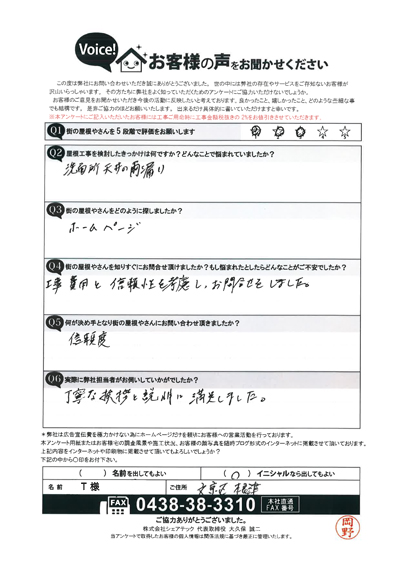 Voice!
お客様の声をお聞かせください
この度は弊社にお問い合わせいただき誠にありがとうございました。世の中には弊社の存在やサービスをご存知ないお客様が
沢山いらっしゃいます。その方たちに弊社をよく知っていただくためのアンケートにご協力いただけないでしょうか。
お客様のご意見をお聞かせいただき今後の活動に反映したいと考えております。良かったこと、嬉しかったこと、どのような些細な事
でも結構です。是非ご協力のほどお願いします。出来るだけ具体的に書いていただけますと幸いです。
※本アンケートにご記入いただいたお客様には工事ご用命時に工事金額税抜きの2%をお値引きさせていただきます。
Q1 街の屋根やさんを5段階で評価をお願いします ☆ ☆ ☆ ☆ ☆
Q2 屋根工事を検討したきっかけは何ですか?どんなことで悩まれていましたか?
洗面所天井の雨漏り
Q3 街の屋根やさんをどのように探しましたか?
ホームページ
Q4 街の屋根やさんを知りすぐにお問合せ頂けましたか?もし悩まれたとしたらどんなことがご不安でしたか?
工事費用と信頼性を考慮し、お問合せをしました。
Q5 何が決め手となり街の屋根やさんにお問い合わせ頂きましたか?
信頼度
Q6 実際に弊社担当者がお伺いしていかがでしたか?
丁寧な挨拶と説明に満足しました。
*弊社は広告宣伝費を極力かけない為にホームページだけを頼りにお客様への営業活動を行っております。
本アンケート用紙またはお客様宅の調査風景や施工状況、お客様の顔写真を随時ブログ形式のインターネットに掲載させて頂いております。
上記内容をインターネットや印刷物に掲載させて頂いてもよろしいでしょうか?
下記の中から○印をお付け下さい。
( )名前を出してもよい (○)イニシャルなら出してもよい
名前 T様 ご住所 文京区根津
FAX 0438-38-3310 本社直通 FAX番号
ご協力ありがとうございました。
株式会社シェアテック 代表取締役 大久保 誠二
当アンケートで取得したお客様の個人情報は関係法規に基づき厳正に管理いたします。
岡野